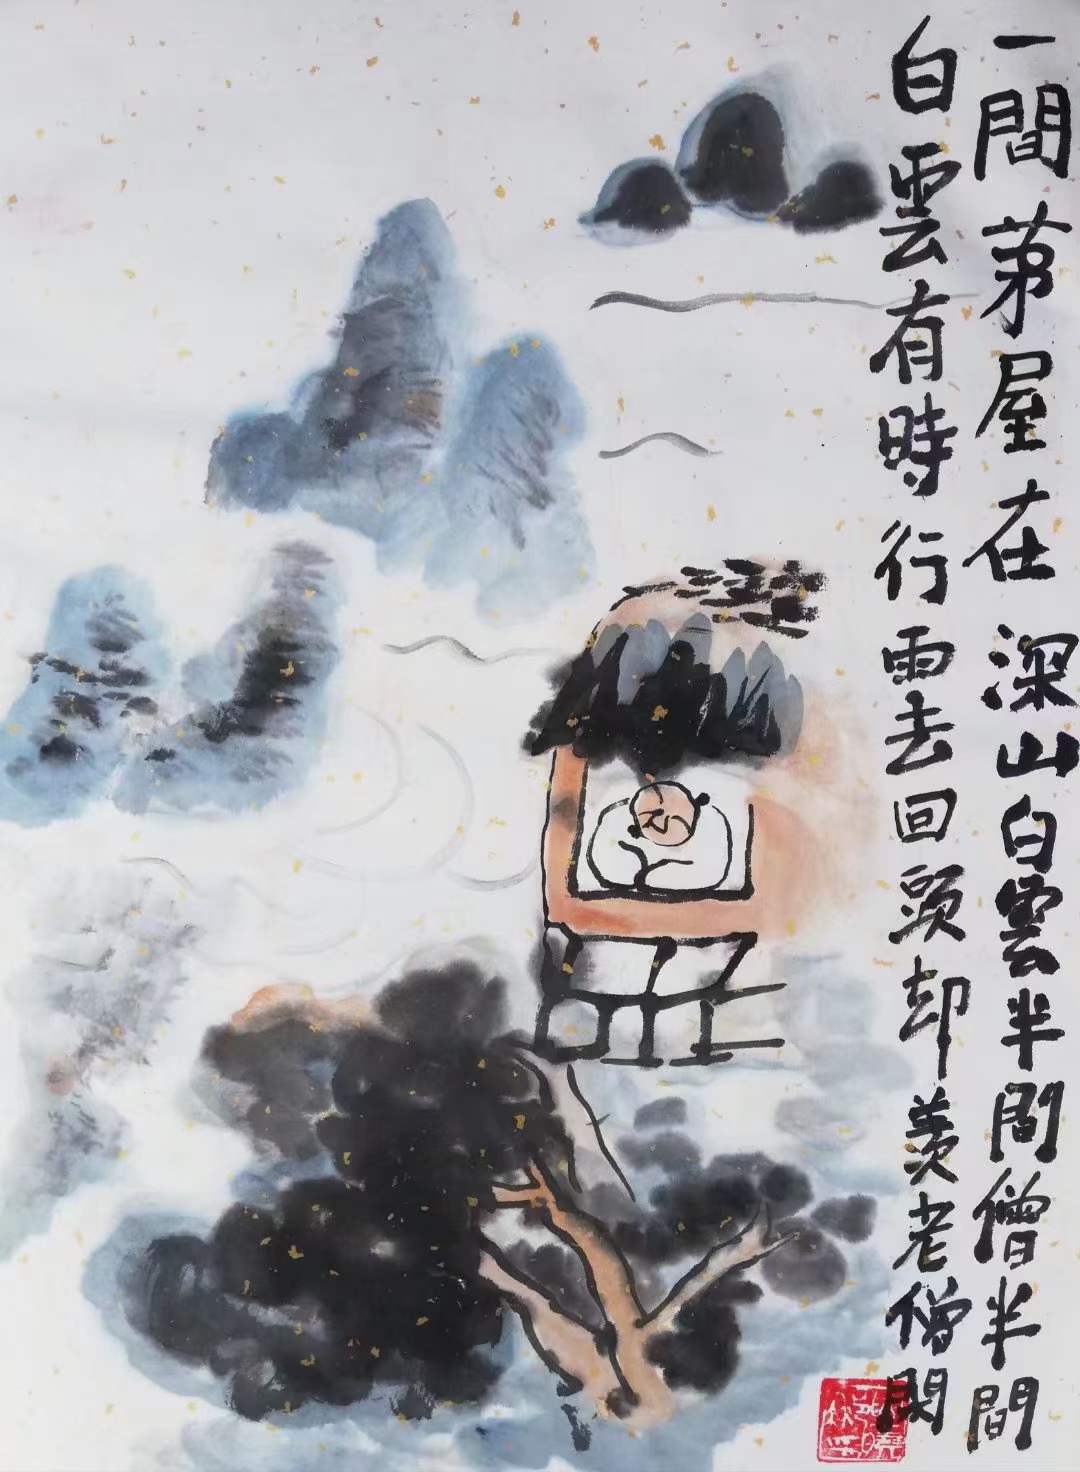 一間茅屋在深山白雲半間僧半間
白雲有時行雨去回頭却羨老僧閑